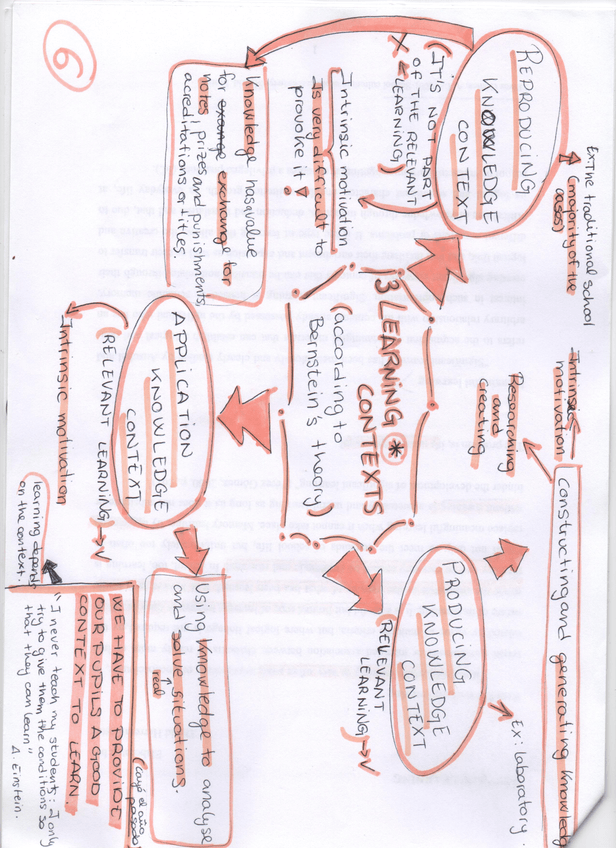 6
3 LEARNING *
CONTEXTS
(according to
Bernstein's theory)
REPRODUCING
KNOWLEDGE
CONTEXT
EX: The traditional school
(majority of the
cases)
(IT'S NOT PART
OF THE RELEVANT
LEARNING)
X
Intrinsic motivation
Is very difficult to
provoke it !
Knowledge has value
for exange exchange for
notes, prizes and punishments,
acreditations or titles.
PRODUCING
KNOWLEDGE
CONTEXT
RELEVANT
LEARNING) → V
Ex: laboratory.
Constructing and generating knowledge
Researching
and
creating
Intrinsic
motivation
APPLICATION
KNOWLEDGE
CONTEXT
(RELEVANT LEARNING) → V
Intrinsic motivation
Using knowledge to analyse
and solve situations.
real
(cayó el año
pasado)
WE HAVE TO PROVIDE
OUR PUPILS A GOOD
CONTEXT TO LEARN.
"I never teach my students: I only
try to give them the conditions so
that they can learn"
A. Einstein.
learning depends
on the context.